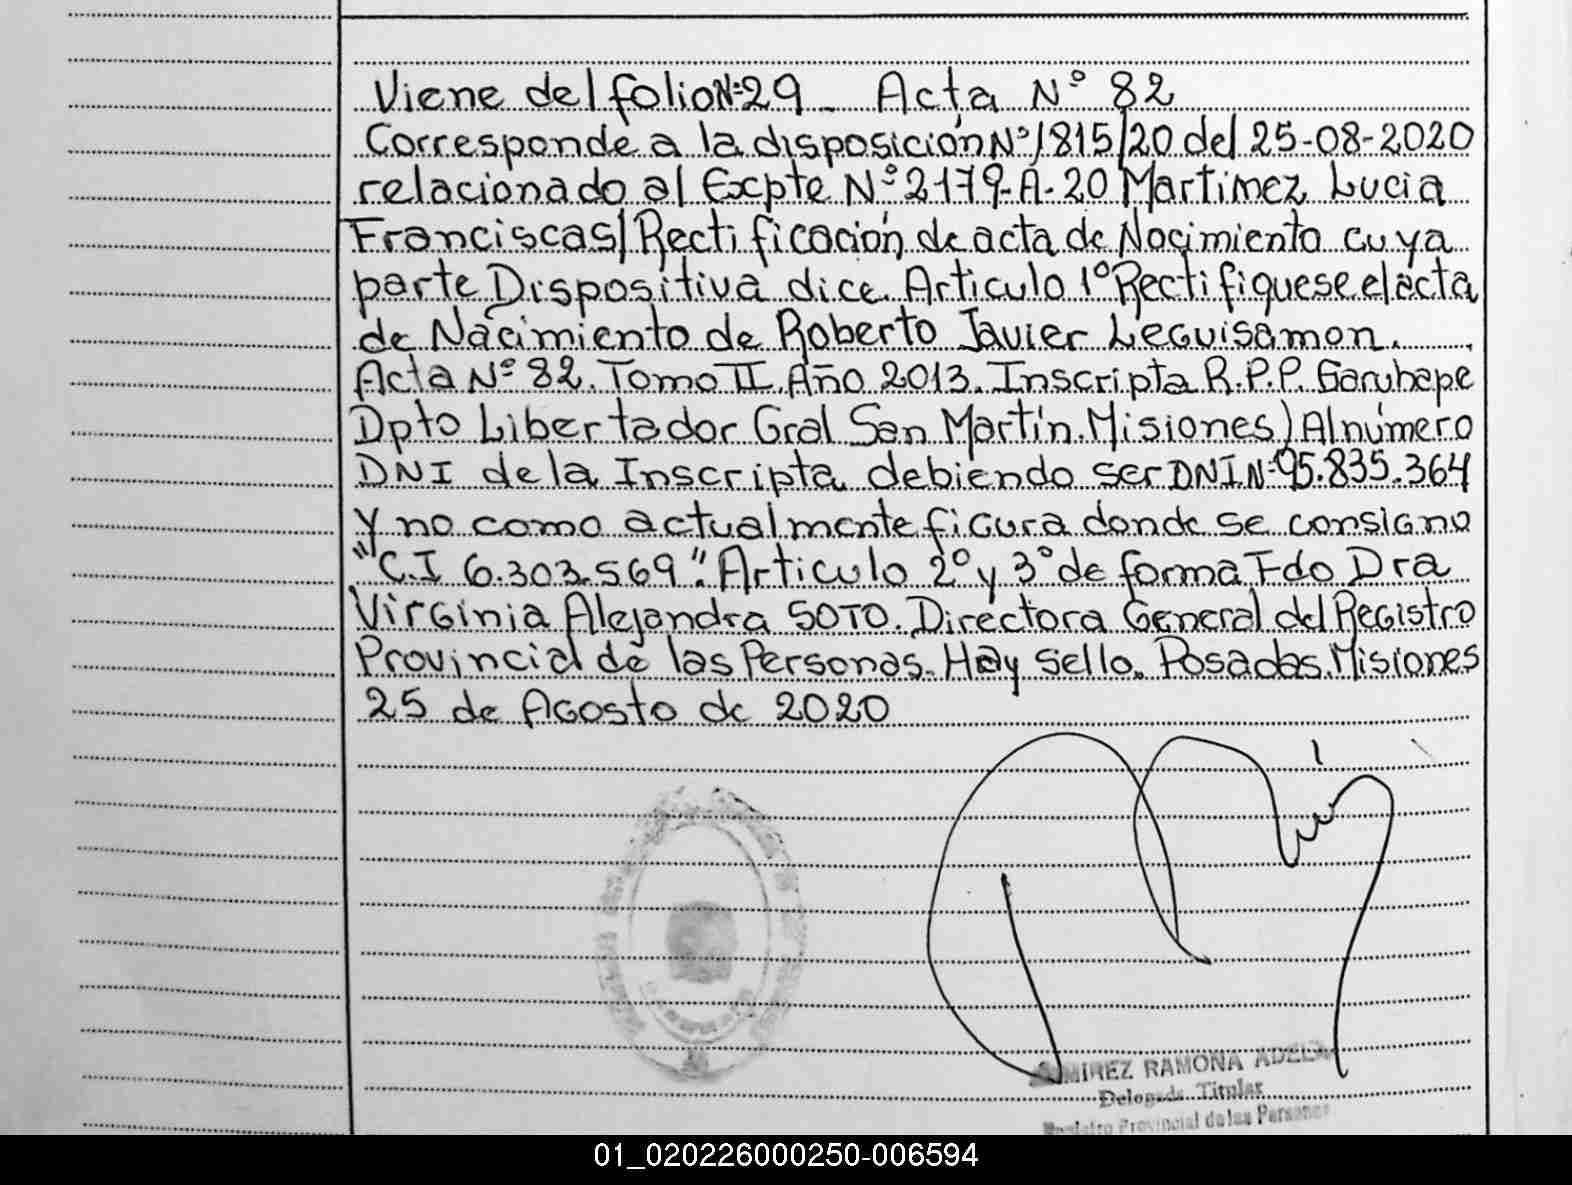 Viene del folio Nº 29 - Acta Nº 82
Corresponde a la disposición Nº 1815/20 del 25-08-2020
relacionado al Expte Nº 2179-A-20 Martinez Lucia
Francisca s/ Rectificación de acta de Nacimiento cuya
parte Dispositiva dice. Articulo 1º Rectifiquese el acta
de Nacimiento de Roberto Javier Leguisamon.
Acta Nº 82. Tomo II. Año 2013. Inscripta R.P.P. Garuhape
Dpto Libertador Gral San Martín. Misiones) Al número
DNI de la Inscripta debiendo ser DNI Nº 95.835.364
Y no como actualmente figura donde se consigno
"C.I 6.303.569". Articulo 2º y 3º de forma Fdo Dra
Virginia Alejandra SOTO. Directora General del Registro
Provincial de las Personas. Hay sello. Posadas. Misiones
25 de Agosto de 2020
RAMONA ADELA
Delegada Titular
Registro Provincial de las Personas
01_020226000250-006594